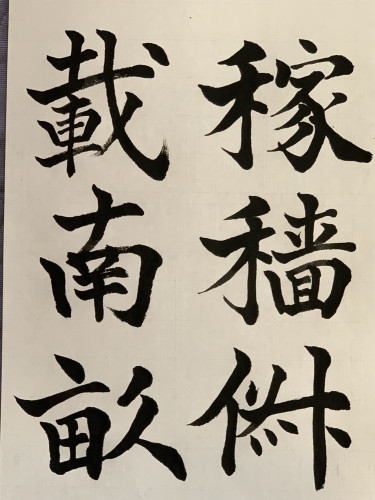 稼穡俶
載南畝